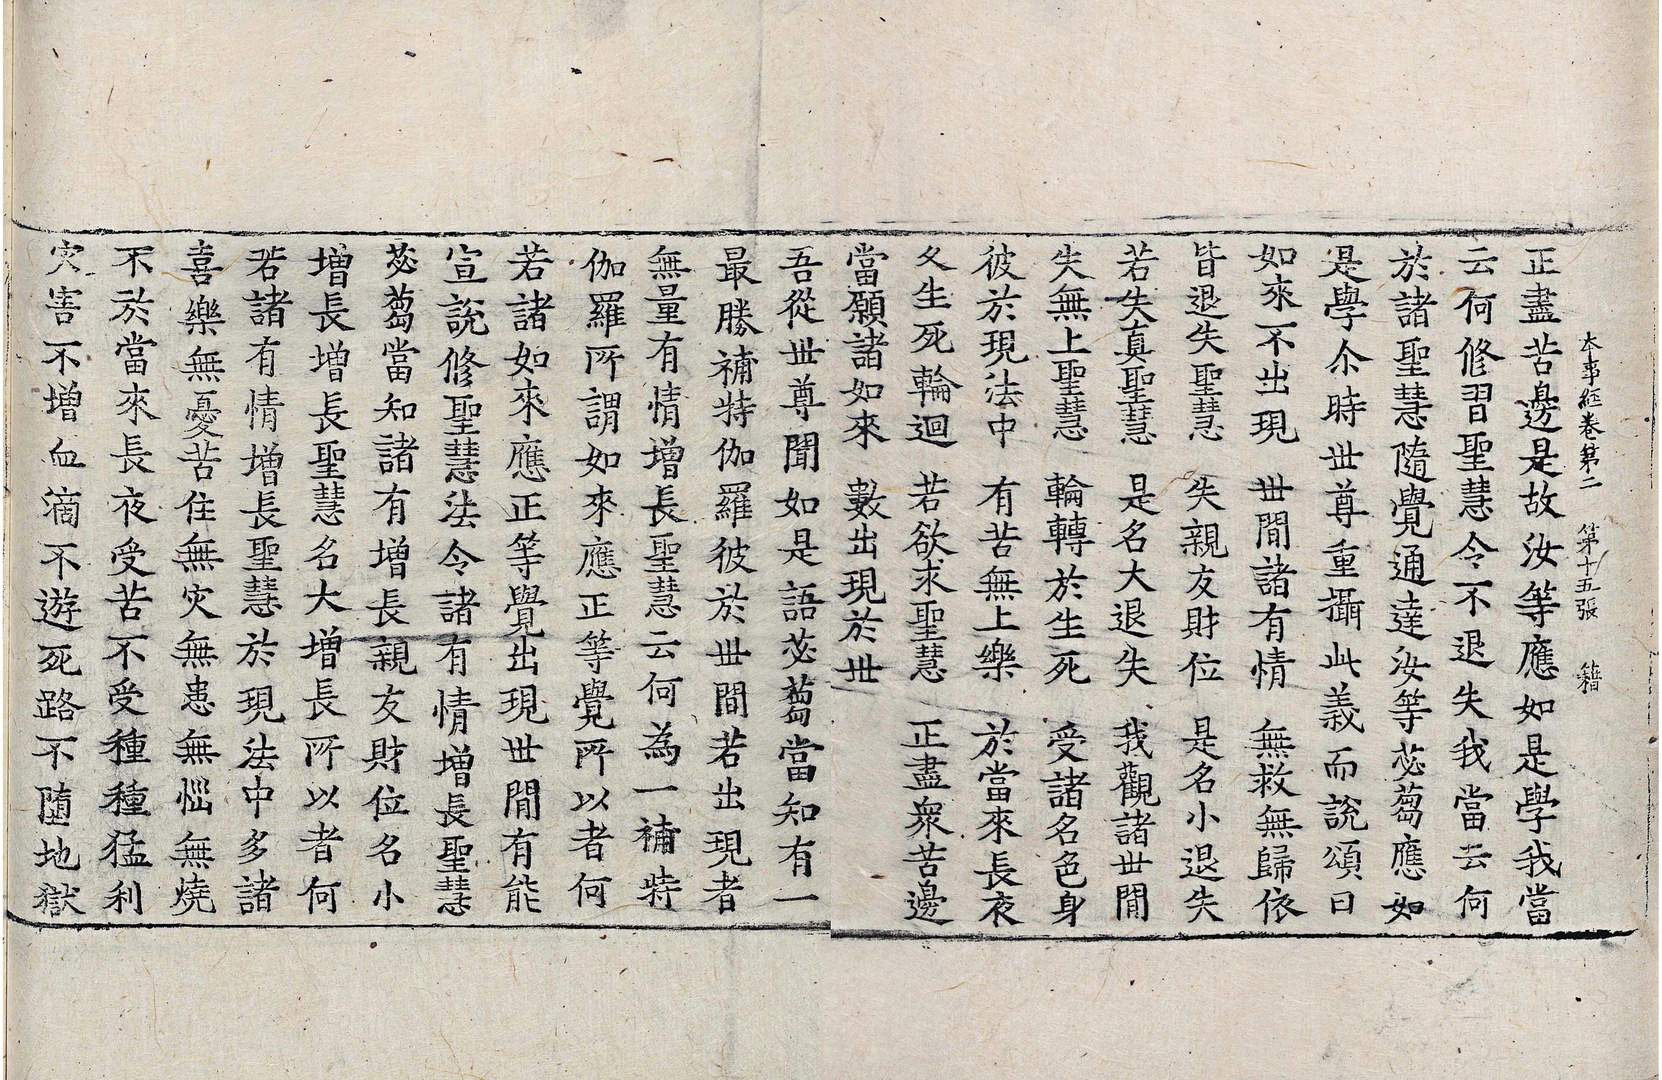 本事經卷第二　第十五張　籍
正盡苦邊是故汝等應如是學我當
云何修習聖慧令不退失我當云何
於諸聖慧隨覺通達汝等苾芻應如
是學尒時世尊重攝此義而說頌曰
如來不出現　世間諸有情　無救無歸依
皆退失聖慧　失親友財位　是名小退失
若失真聖慧　是名大退失　我觀諸世間
失無上聖慧　輪轉於生死　受諸名色身
彼於現法中　有苦無上樂　於當來長夜
久生死輪迴　若欲求聖慧　正盡衆苦邊
當願諸如來　數出現於世
吾從世尊聞如是語苾芻當知有一
最勝補特伽羅彼於世間若出現者
無量有情增長聖慧云何為一補特
伽羅所謂如來應正等覺所以者何
若諸如來應正等覺出現世間有能
宣說修聖慧法令諸有情增長聖慧
苾芻當知諸有增長親友財位名小
增長增長聖慧名大增長所以者何
若諸有情增長聖慧於現法中多諸
喜樂無憂苦住無灾無患無惱無燒
不於當來長夜受苦不受種種猛利
灾害不增血滴不遊死路不隨地獄